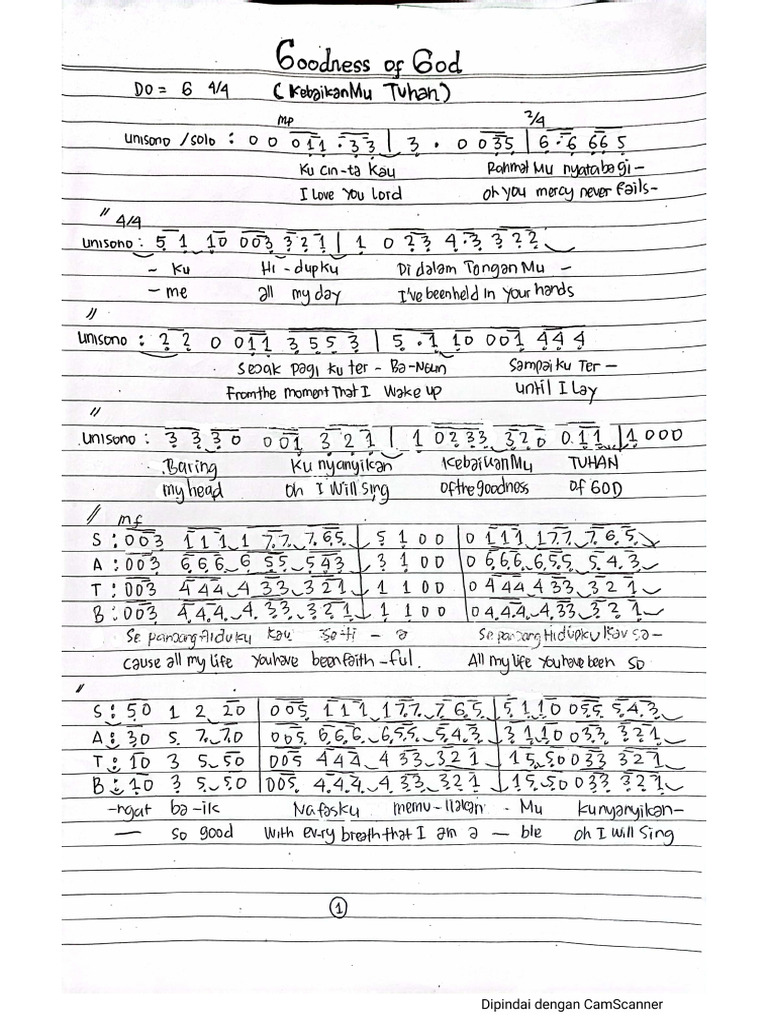 Goodness of God
DO = G 4/4 (KebaikanMu Tuhan)
mp 2/4
unisono /solo : 0 0 011 . 33 | 3 . 0 0 35 | 6 . 6 665
Ku cin-ta kau Rahmat Mu nyata bagi-
I love You Lord oh you mercy never Fails-
" 4/4
unisono : 5 1 10 003 321 | 1 0 23 4.3 322
- Ku Hi -dupku Di dalam TanganMu -
- me all my day I've been held in Your hands
"
unisono : 22 0 011 3553 | 5 .1 10 001 444
Sejak pagi ku ter - Ba-Ngun Sampai ku Ter -
From the moment That I Wake up until I Lay
"
unisono : 3 3 30 001 321 | 1 0233 320 011 | 1000
Baring Ku nyanyikan KebaikanMu TUHAN
my head oh I Will Sing of the goodness of GOD
" mf
S : 003 111 1 77 765 | 5 1 0 0 | 0 111 177 765
A : 003 666 6 55 543 | 3 1 0 0 | 0 666 655 543
T : 003 444 4 33 321 | 1 1 0 0 | 0 444 433 321
B : 003 444 4 33 321 | 1 1 0 0 | 0 444 433 321
Se panjang Hidupku kau Se-ti - a Se panjang Hidupku Kau Sa-
Cause all my life You have been faith -ful. All my life You have been so
"
S : 50 1 2 20 | 005 111 177 765 | 5110 055 543
A : 30 5 7 70 | 005 666 655 543 | 3110 033 321
T : 10 3 5 50 | 005 444 433 321 | 1550 033 321
B : 10 3 5 50 | 005 444 433 321 | 1550 033 321
-ngat ba-ik Nafasku memu-liakan - Mu Ku nyanyikan-
— so good With every breath that I am a - ble oh I Will Sing
1
Dipindai dengan CamScanner